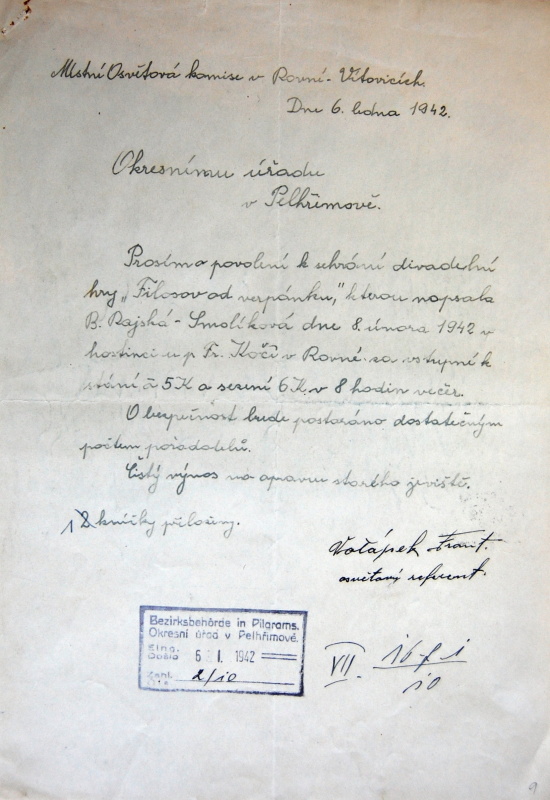 Místní Osvětová komise v Rovní-Vítovicích.
Dne 6. ledna 1942.
Okresnímu úřadu
v Pelhřimově.
Prosíme o povolení k sehrání divadelní
hry „Filosof od verpánku," kterou napsala
B. Rajská-Smolíková dne 8. února 1942 v
hostinci u p. Fr. Kočí v Rovné za vstupné k
stání à 5K a sezení 6K v 8 hodin večer.
O bezpečnost bude postaráno dostatečným
počtem pořadatelů.
Čistý výnos na opravu starého jeviště.
2 knížky přiloženy.
Votápek Frant.
osvětový referent.
Bezirksbehörde in Pilgrams.
Okresní úřad v Pelhřimově.
Eing.
Došlo 6. I. 1942
Zahl.
Čís. 2/10
VII. 16/1
10
9